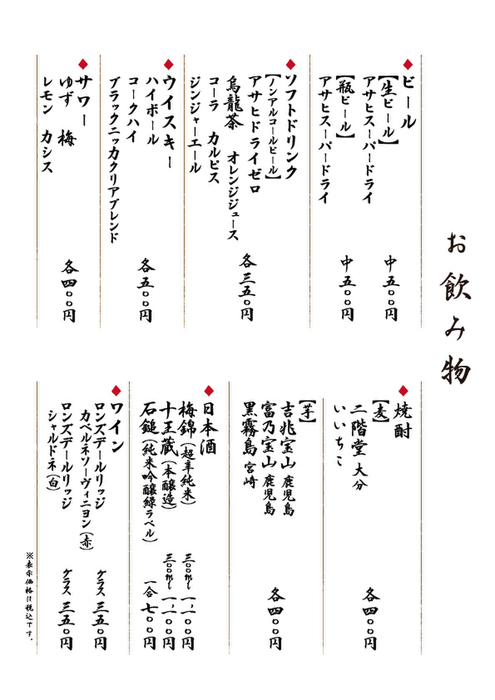 お飲み物
◆ビール
【生ビール】
アサヒスーパードライ 中 五〇〇円
【瓶ビール】
アサヒスーパードライ 中 五〇〇円
◆ソフトドリンク
【ノンアルコールビール】
アサヒドライゼロ
烏龍茶 オレンジジュース
コーラ カルピス
ジンジャーエール
各 三五〇円
◆ウイスキー
ハイボール
コークハイ
ブラックニッカクリアブレンド
各 五〇〇円
◆サワー
ゆず 梅
レモン カシス
各 四〇〇円
◆焼酎
【麦】
二階堂 大分
いいちこ
各 四〇〇円
【芋】
吉兆宝山 鹿児島
富乃宝山 鹿児島
黒霧島 宮崎
各 四〇〇円
◆日本酒
梅錦(超辛純米) 三〇〇ml 一、一〇〇円
十王蔵(本醸造) 三〇〇ml 一、一〇〇円
石鎚(純米吟醸緑ラベル) 一合 七〇〇円
◆ワイン
ロンズデールリッジ
カベルネソーヴィニヨン(赤) グラス 三五〇円
ロンズデールリッジ
シャルドネ(白) グラス 三五〇円
※表示価格は税込です。